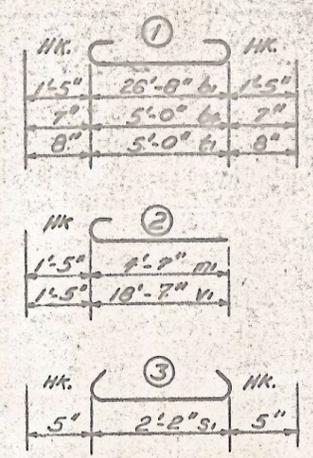 1
HK. HK.
1'-5" 26'-8" b₁ 1'-5"
7" 5'-0" 7"
8" 5'-0" t₁ 8"
2
HK
1'-5" m₁
1'-5" 18'-7" v₁
3
HK. HK.
5" 2'-2" s₁ 5"